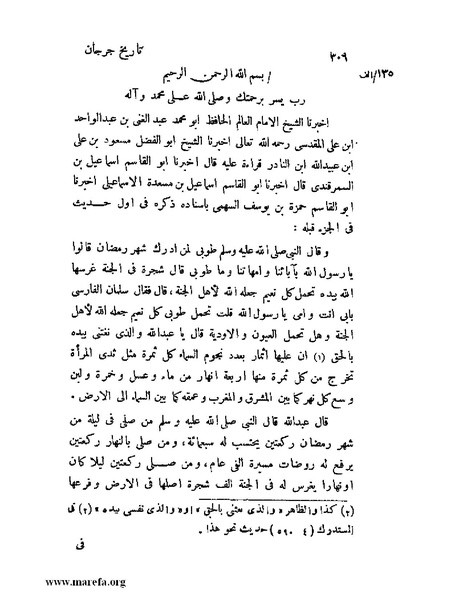 ٣٠٩ تاريخ جرجان
١٣٥/الف / بسم الله الرحمن الرحيم
رب يسر برحمتك وصلى الله على محمد وآله
اخبرنا الشيخ الامام العالم الحافظ ابو محمد عبد الغنى بن عبدالواحد
ابن على المقدسى رحمه الله تعالى اخبرنا الشيخ ابو الفضل مسعود بن على
ابن عبيدالله ابن النادر قراءة عليه قال اخبرنا ابو القاسم اسماعيل بن
السمرقندى قال اخبرنا ابو القاسم اسماعيل بن مسعدة الاسماعيلى اخبرنا
ابو القاسم حمزة بن يوسف السهمى باسناده ذكره فى اول حديث
فى الجزء قبله :
و قال النبى صلى الله عليه وسلم طوبى لمن ادرك شهر رمضان قالوا
يا رسول الله بآبائنا وامهاتنا وما طوبى قال شجرة فى الجنة غرسها
الله بيده تحمل كل نعيم جعله الله لأهل الجنة، قال فقال سلمان الفارسى
بابى انت وامى يا رسول الله قلت تحمل طوبى كل نعيم جعله الله لأهل
الجنة و هل تحمل العيون و الاودية قال يا عبدالله والذى نفتنى بيده
بالحق (١) ان عليها اثمار بعدد نجوم السماء كل ثمرة مثل ثدى المرأة
تخرج من كل ثمرة منها اربعة انهار من ماء وعسل و خمرة و لبن
و سع كل نهر كما بين المشرق و المغرب و عمقه كما بين السماء الى الارض .
قال عبدالله قال النبى صلى الله عليه و سلم من صلى فى ليلة من
شهر رمضان ركعتين يحتسب له سبعمائة، و من صلى بالنهار ركعتين
يرفع له روضات مسيرة الفى عام، و من صلى ركعتين ليلا كان
اونهارا يغرس له فى الجنة الف شجرة اصلها فى الارض و فرعها
(٢) كذا والظاهر « والذى بعثنى بالحق » او « والذى نفسى بيده » (٢) فى
المستدرك (٤ / ٥٩٠) حديث نحو هذا .
فى
www.marefa.org